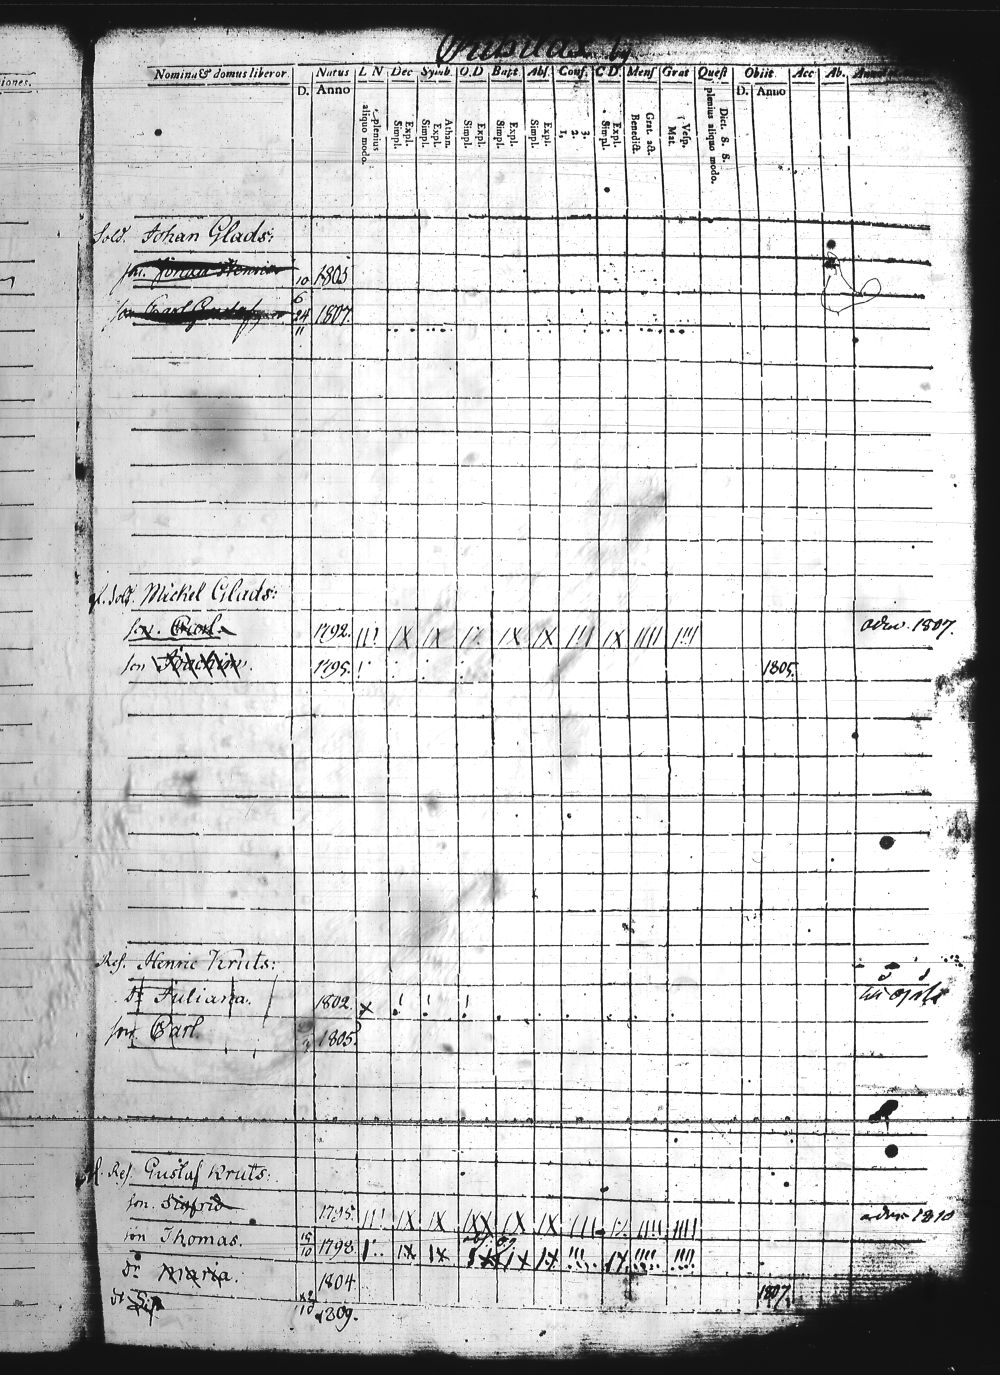 by
iones.
Nomina & domus liberor. Natus L N Dec Symb. O.D Bapt Abs. Conf. C D. Mens Grat Quest Obiit Acc Ab.
D. Anno plenius aliquo modo. Expl. Simpl. Athan. Expl. Simpl. Expl. Simpl. Expl. Simpl. Expl. Simpl. 3. 2. 1. Expl. Simpl. Grat. act. Benedict. Vesp. Mat. Dict. S. S. plenius aliquo modo. D. Anno
Sold. Johan Glads:
son. Johan Henric 10 1805
son Carl Gustaf 6 24 11 1807.
f. Sold. Mickel Glads:
son. Carl. 1792. adm. 1807.
son Joachim. 1795. 1805.
Ref. Henric Kruts:
dr Juliana. 1802.
son Carl. 1805.
f. Ref. Gustaf Kruts:
son. Sigfrid 1795. adm 1810
son Thomas. 15 10 1798
dr Maria. 1804 1807
dr 1809.